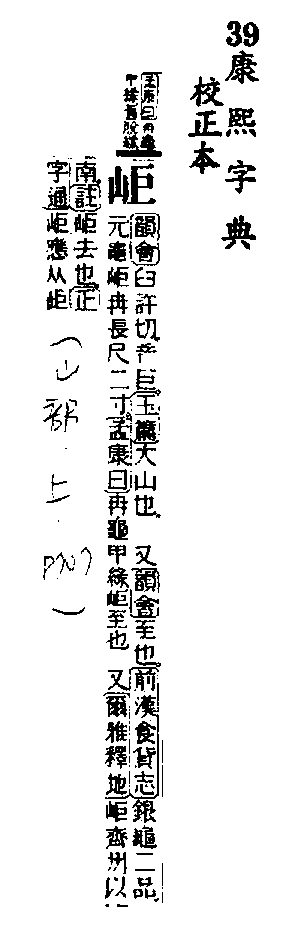 39康熙字典
校正本
孟康曰冉龜
甲緣舊脫緣
岠
韻會臼許切音巨玉篇大山也 又韻會至也前漢食貨志銀龜二品
元龜岠冉長尺二寸孟康曰冉龜甲緣岠至也 又爾雅釋地岠齊州以
南註岠去也正
字通岠應从岠
(山部.上.